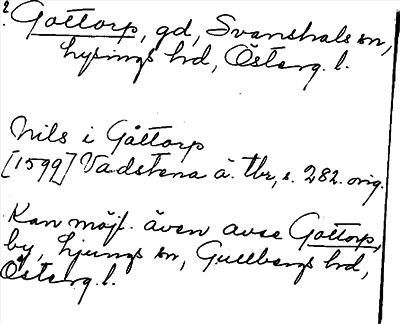 ? Gottorp, gd, Svanshals sn,
Lysings hd, Österg. l.
Nils i Gåttorp
[1599] Vadstena ä. tbr, s. 282. orig.
Kan möjl. även avse Gottorp,
by, Ljungs sn, Gullbergs hd,
Österg. l.